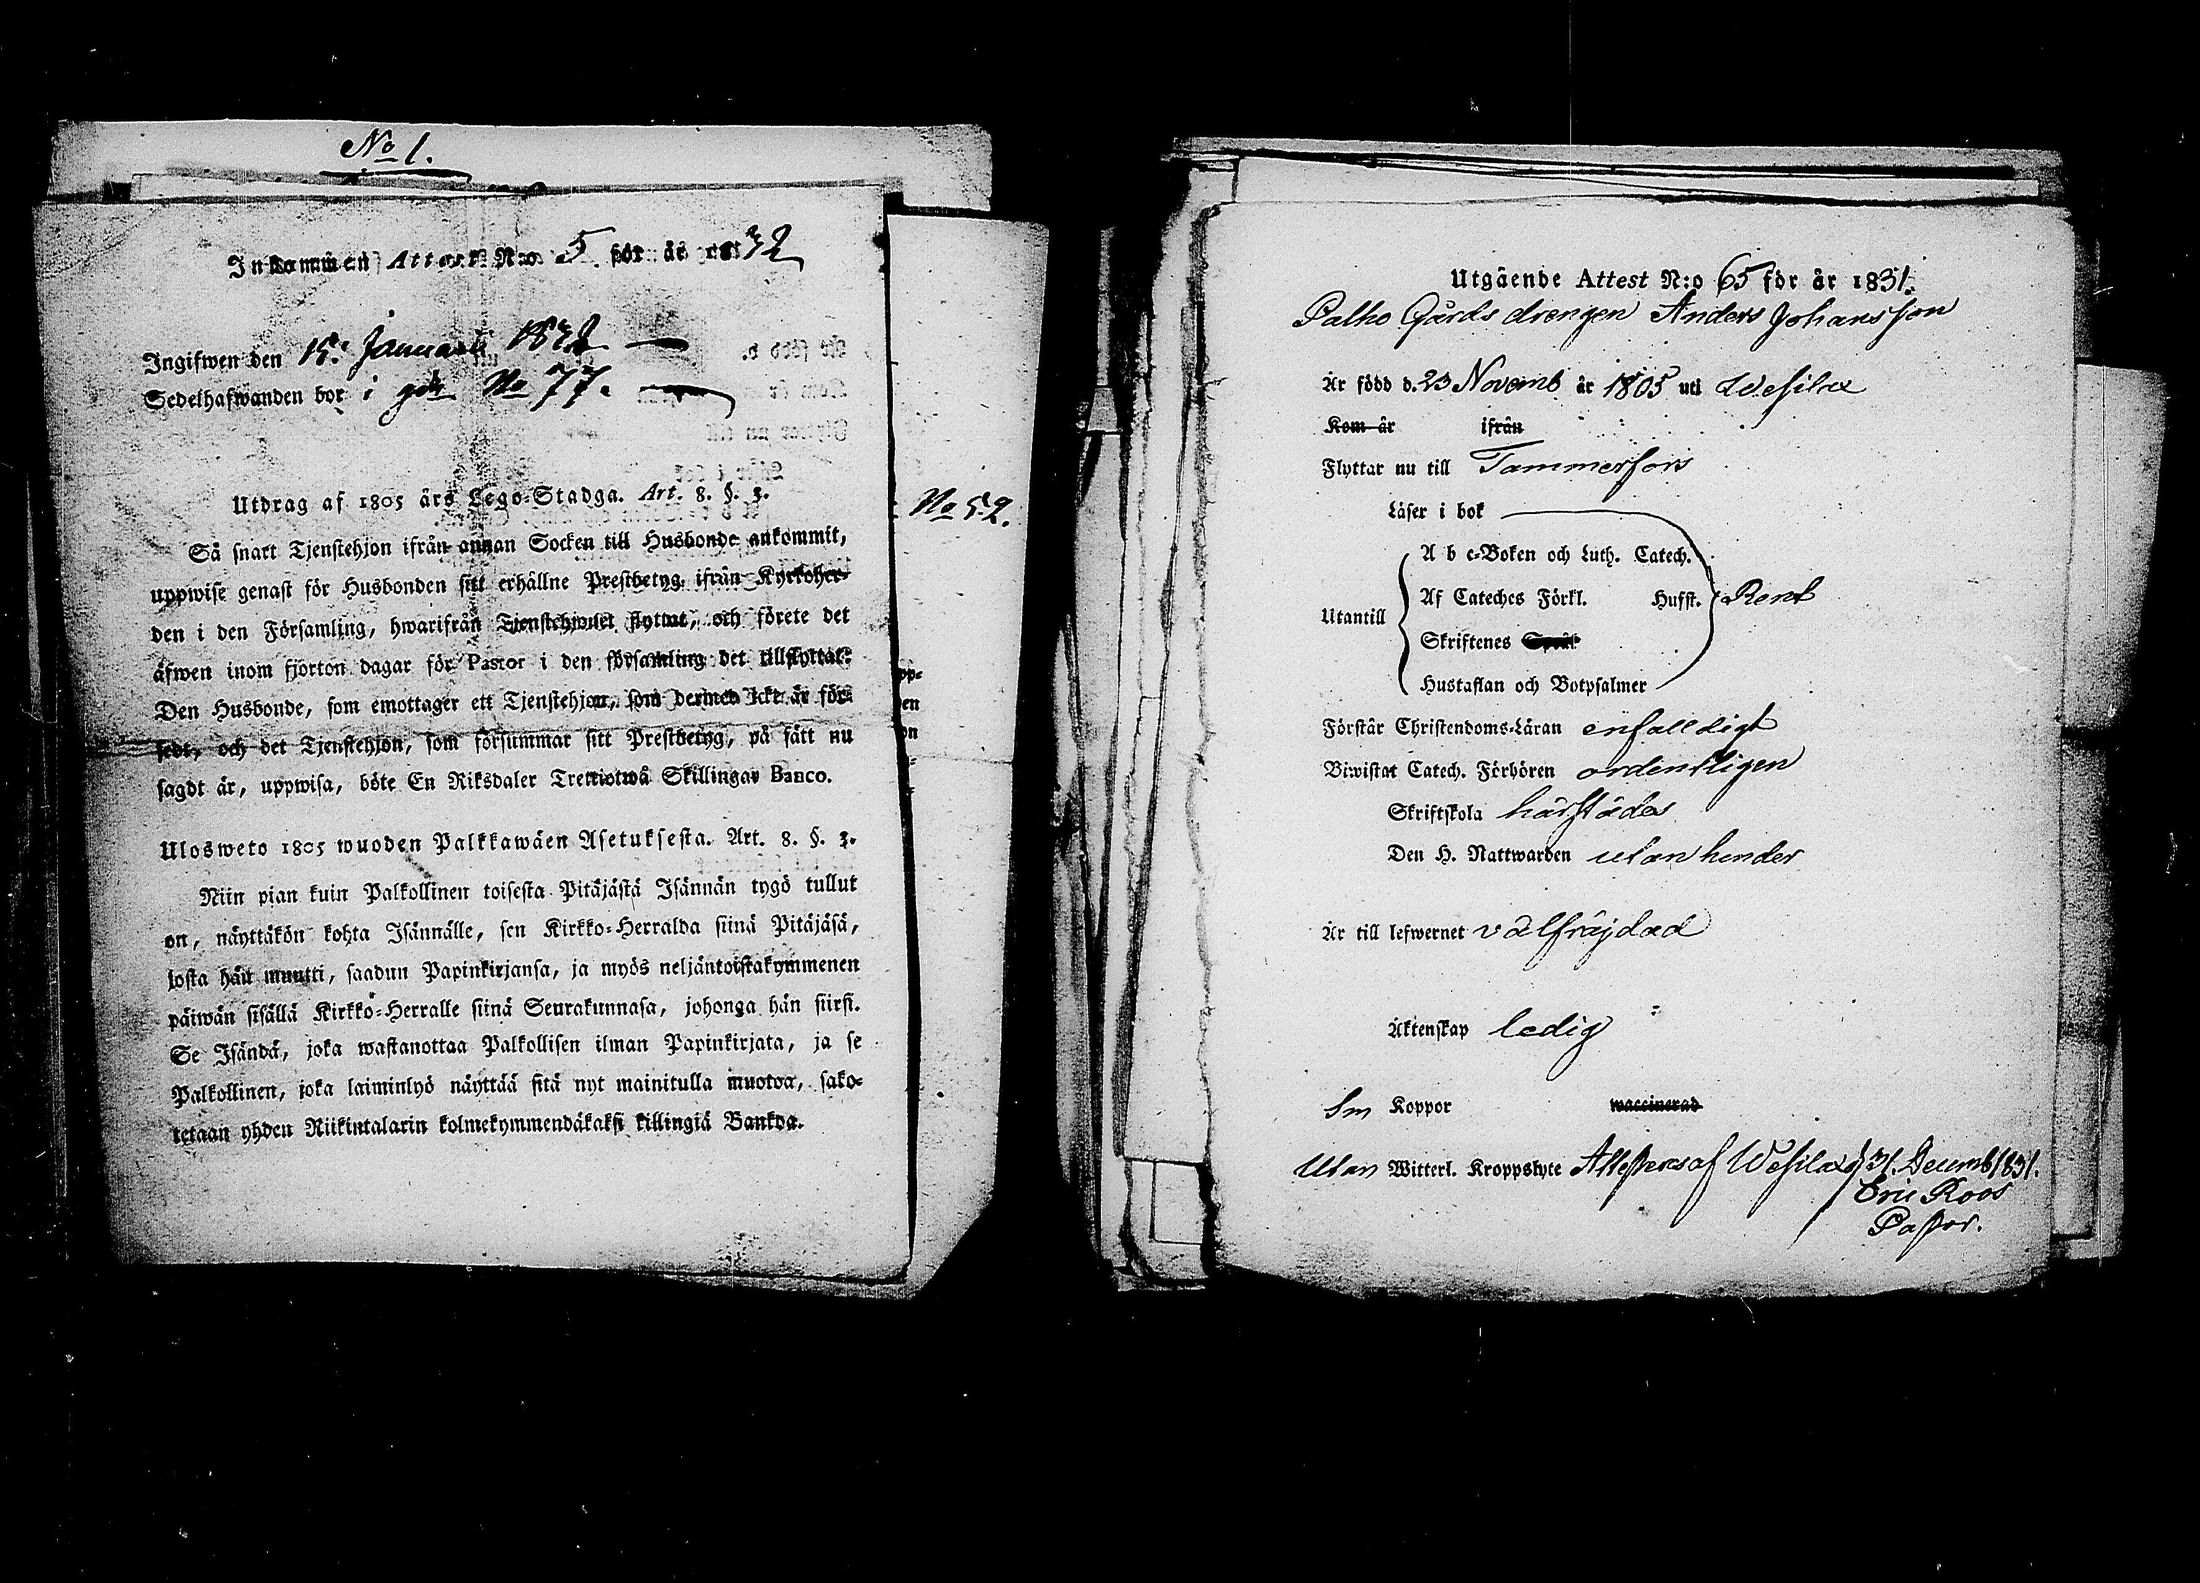 No 1.
Inkommen Attest N:o 5 för år 1832
Ingifwen den 15. Januarii 1832
Sedelhafwanden bor i gdn No 77.
Utdrag af 1805 års Lego-Stadga. Art. 8. §. 3.
Så snart Tjenstehjon ifrån annan Socken till Husbonde ankommit,
uppwise genast för Husbonden sitt erhållne Prestbetyg ifrån Kyrkoher-
den i den Församling, hwarifrån Tjenstehjonet flyttat, och förete det
äfwen inom fjorton dagar för Pastor i den församling det tillflyttat.
Den Husbonde, som emottager ett Tjenstehjon, som dermed icke är för-
sedt, och det Tjenstehjon, som försummar sitt Prestbetyg, på sätt nu
sagdt är, uppwisa, böte En Riksdaler Trettiotwå Skillingar Banco.
Ulosweto 1805 wuoden Palkkawäen Asetuksesta. Art. 8. §. 3.
Niin pian kuin Palkollinen toisesta Pitäjästä Isännän tygö tullut
on, näyttäkön kohta Isännälle, sen Kirkko-Herralda siinä Pitäjäsä,
josta hän muutti, saadun Papinkirjansa, ja myös neljäntoistakymmenen
päiwän sisällä Kirkko-Herralle siinä Seurakunnasa, johonga hän siirsi.
Se Isändä, joka wastanottaa Palkollisen ilman Papinkirjata, ja se
Palkollinen, joka laiminlyö näyttää sitä nyt mainitulla muotoa, sako-
tetaan yhden Riikintalarin kolmekymmendäkaksi killingiä Bankoa.
No 52.
pp-
en
on
Utgående Attest N:o 65 för år 1831.
Palho Gårds drengen Anders Johansson
Är född d. 23 Novemb år 1805 uti Wesilax
Kom år ifrån
Flyttar nu till Tammerfors
Läser i bok
A b c-Boken och Luth. Catech.
Utantill Af Cateches Förkl. Hufst. Rent
Skriftenes Språk
Hustaflan och Botpsalmer
Förstår Christendoms-Läran enfalldigt
Biwistat Catech. Förhören ordentligen
Skriftskola härstädes
Den H. Nattwarden utan hinder
Är till lefwernet välfräjdad
Äktenskap ledig
Sm Koppor waccinerad
Utan Witterl. Kroppslyte Attesteras af Wesilax d 31. Decemb 1831.
Eric Roos
Pastor.